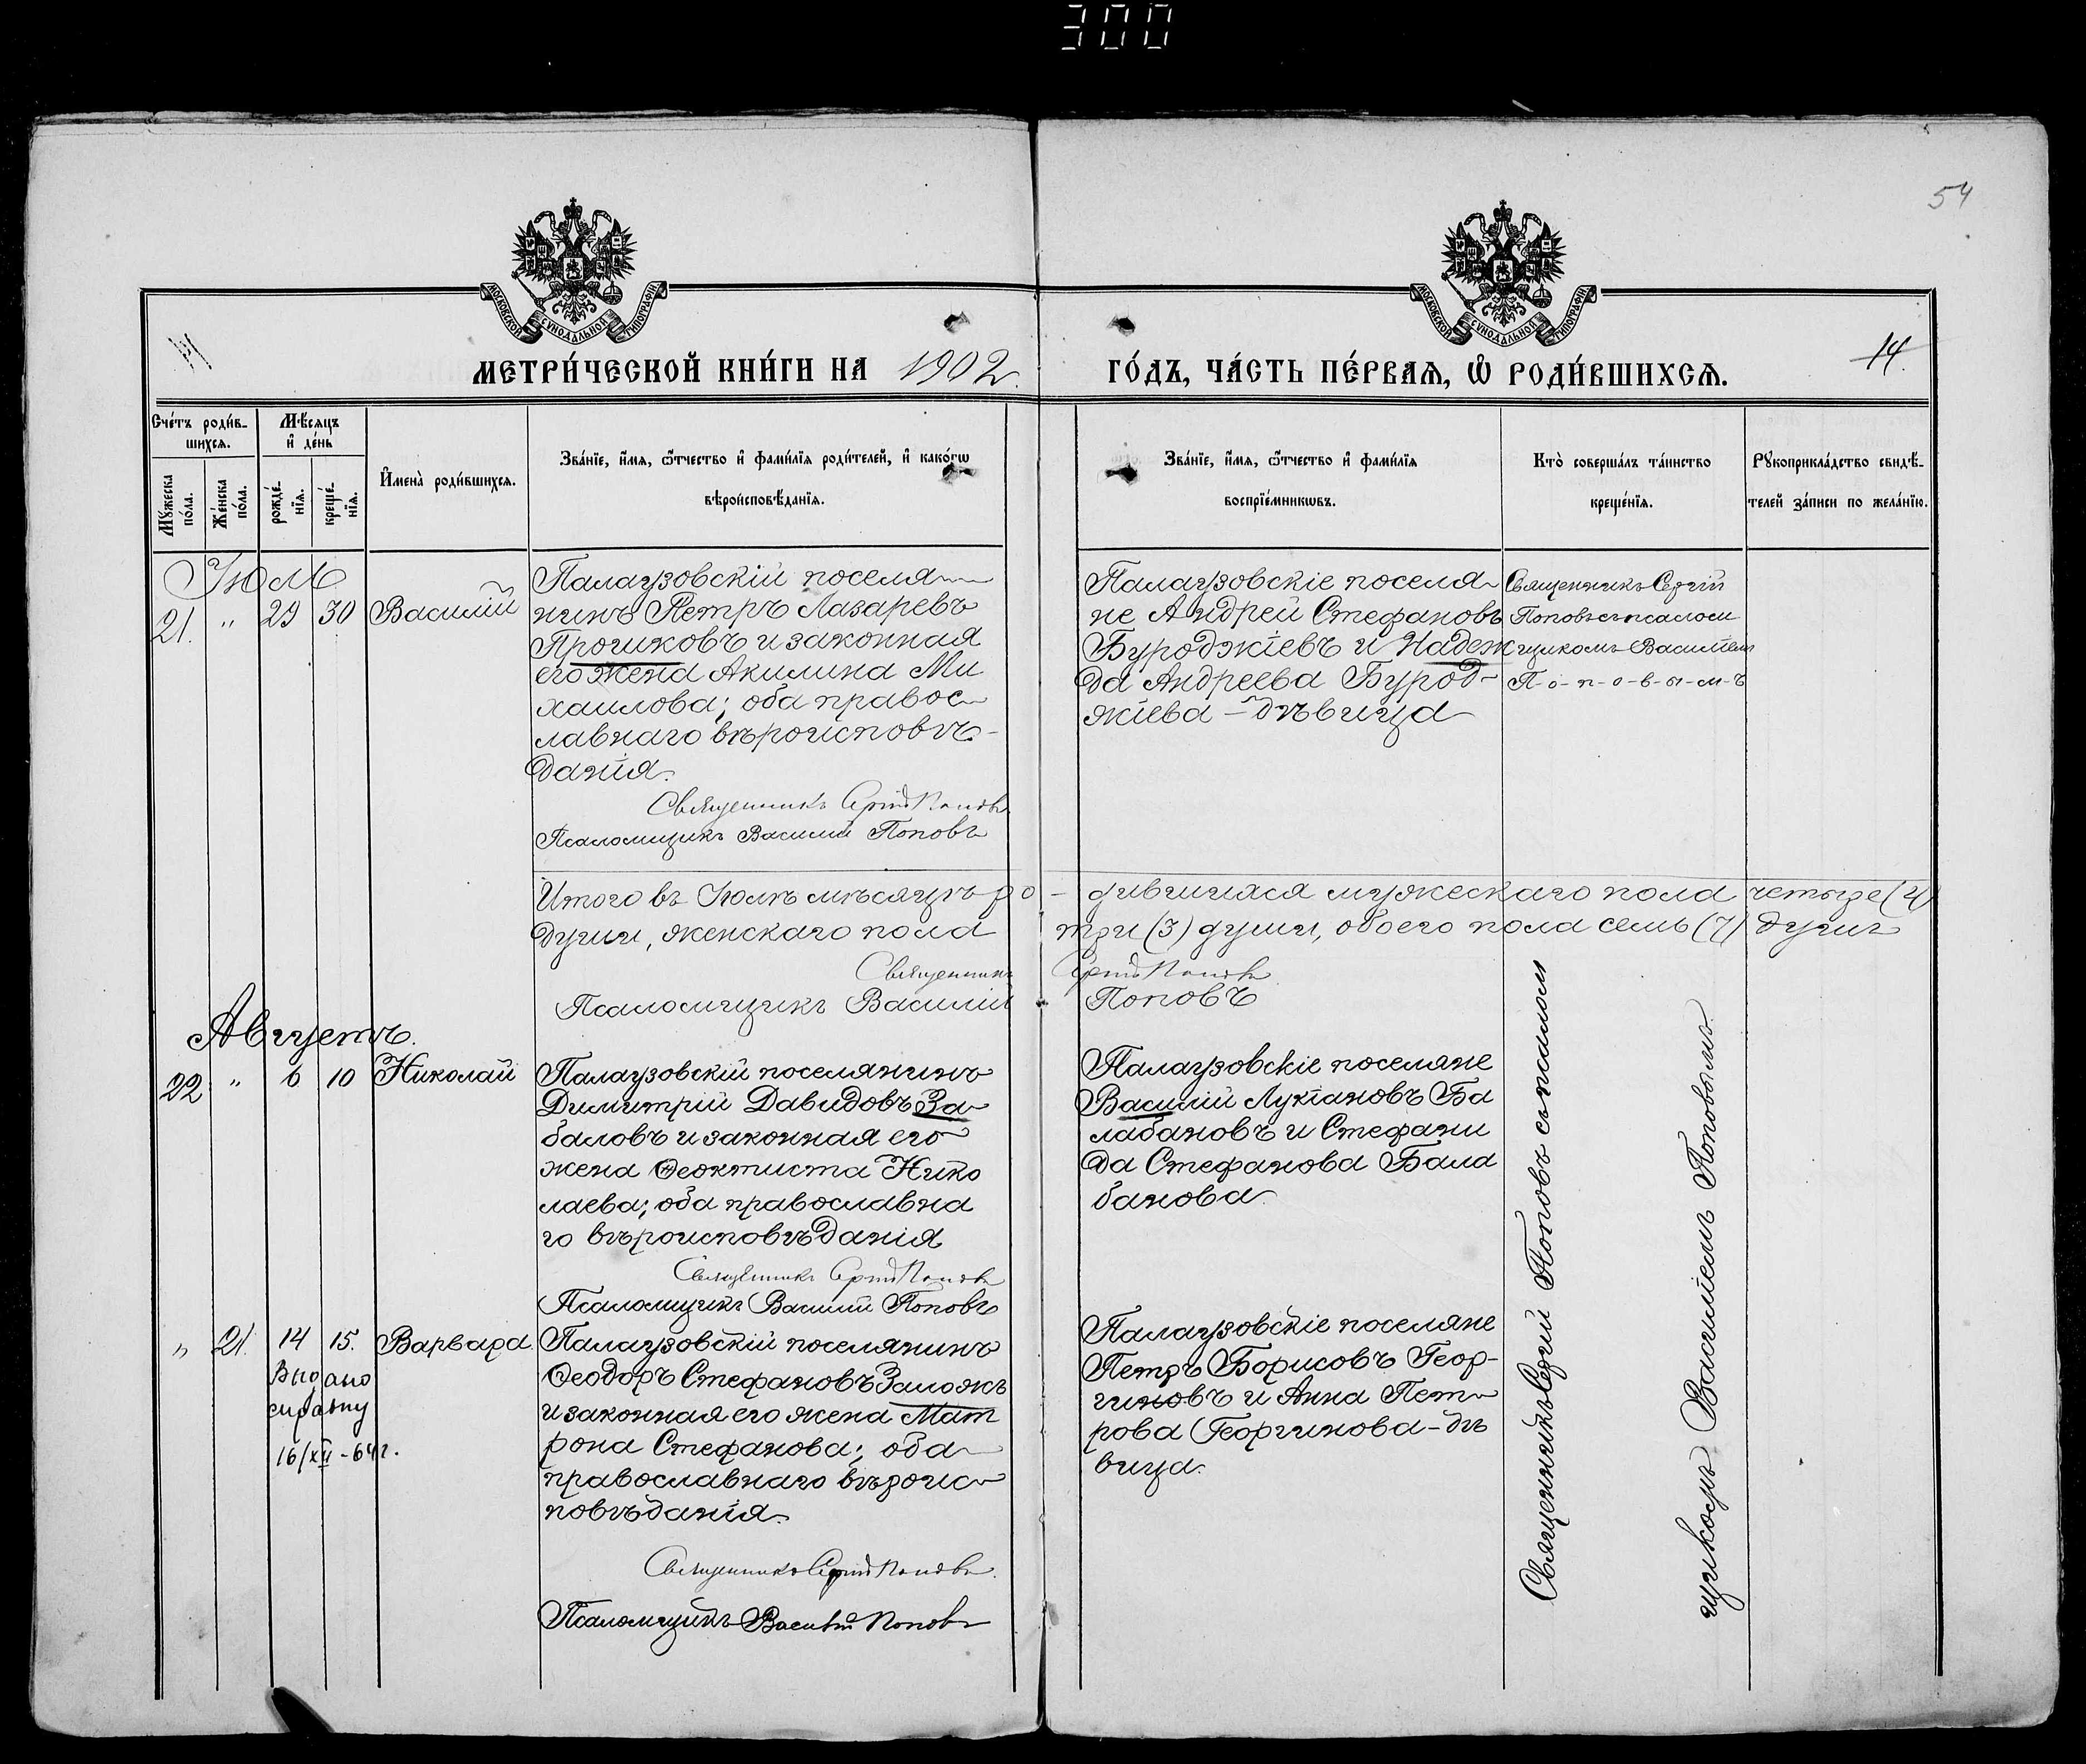 300
54
МОСКОВСКОЙ СУНОДАЛЬНОЙ ТИПОГРАФІИ
МОСКОВСКОЙ СУНОДАЛЬНОЙ ТИПОГРАФІИ
МЕТРИ́ЧЕСКОЙ КНИ́ГИ НА 1902
ГО́ДЪ, ЧА́СТЬ ПЕ́РВАѦ, Ѡ҆ РОДИ́ВШИХСѦ.
14
Сче́тъ роди́в-
шихсѧ.
Мꙋ́жеска
по́ла.
Же́нска
по́ла.
Мѣ́сѧцъ
и҆ де́нь
рожде́-
нїѧ.
креще́-
нїѧ.
И҆мена̀ роди́вшихсѧ.
Зва́нїе, и҆́мѧ, ѻ҆́тчество и҆ фами́лїѧ роди́телей, и҆ како́гѡ
вѣроисповѣ́данїѧ.
Зва́нїе, и҆́мѧ, ѻ҆́тчество и҆ фами́лїѧ
воспрїе́мникѡвъ.
Кто̀ соверша́лъ та́инство
креще́нїѧ.
Рꙋкоприкла́дство свидѣ́-
телей за́писи по жела́нїю.
Іюль
21. " 29 30 Василій
Палаузовскій поселя-
нинъ Петръ Лазаревъ
Прочиковъ и законная
его жена Акилина Ми
хаилова; оба правос-
лавнаго вѣроисповѣ-
данія.
Священникъ Сергій Поповъ
Псаломщикъ Василій Поповъ
Палаузовскіе поселя-
не Андрей Стефановъ
Буроджіевъ и Надеж
да Андреева Бурод-
жіева - дѣвица
Священникъ Сергій
Поповъ съ псаломщ
щикомъ Василіемъ
П-о-п-о-в-ы-м-ъ
Итого въ Іюлѣ мѣсяцѣ ро - дившихся мужескаго пола четыре (4)
души, женскаго пола три (3) души, обоего пола семь (7) душъ
Священникъ Сергій Поповъ
Псаломщикъ Василій Поповъ
Августъ.
22 " 6 10 Николай
Палаузовскій поселянинъ
Димитрій Давидовъ За-
баловъ и законная его
жена Ѳеоктиста Нико
лаева; оба православна
го вѣроисповѣданія
Священникъ Сергій Поповъ
Псаломщикъ Василій Поповъ
Палаузовскіе поселяне
Василій Лукіановъ Ба
лабановъ и Стефани
да Стефанова Бала
банова.
" 21. 14 15. Варвара
Выдано
справку
16/XII-64г.
Палаузовскій поселянинъ
Ѳеодоръ Стефановъ Заложъ
и законная его жена Мат
рона Стефанова; оба
православнаго вѣроис-
повѣданія.
Священникъ Сергій Поповъ
Псаломщикъ Василій Поповъ
Палаузовскіе поселяне
Петръ Борисовъ Геор-
гиновъ и Анна Пет-
рова Георгинова - дѣ
вица.
Священникъ Сергій Поповъ съ псалом
щикомъ Василіемъ Поповымъ.